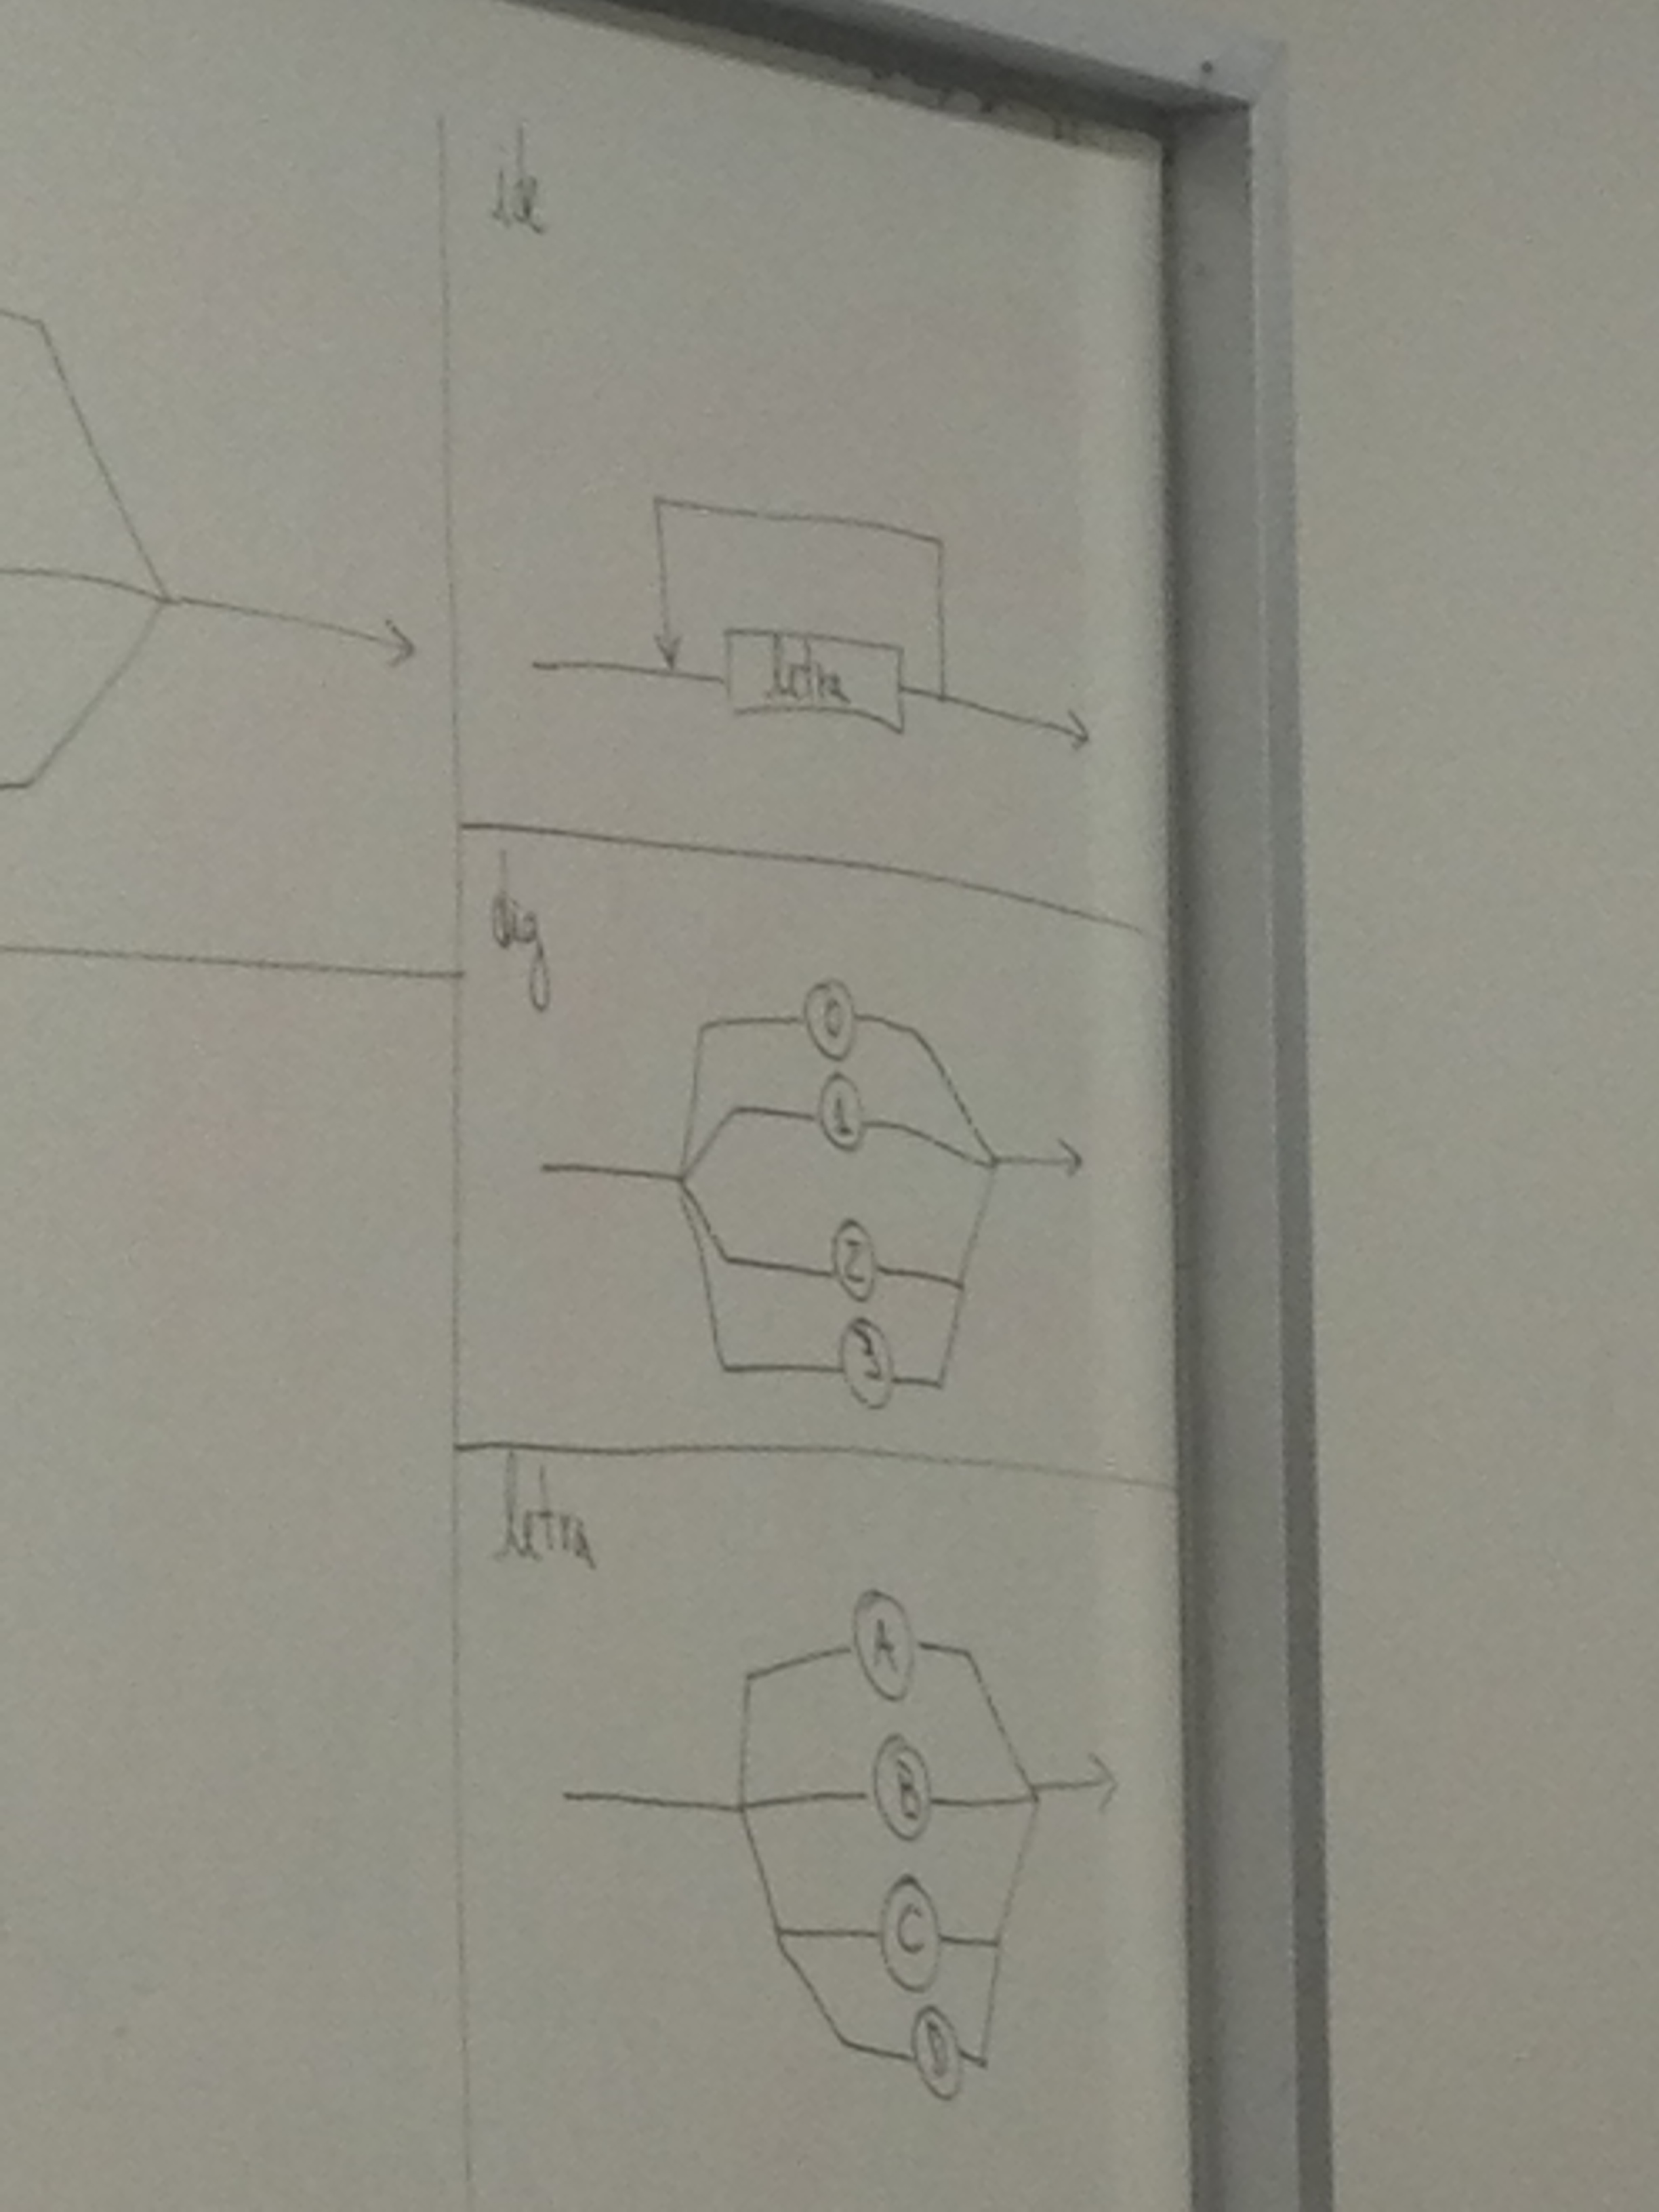 ide
letra
dig
0
1
2
3
letra
A
B
C
D